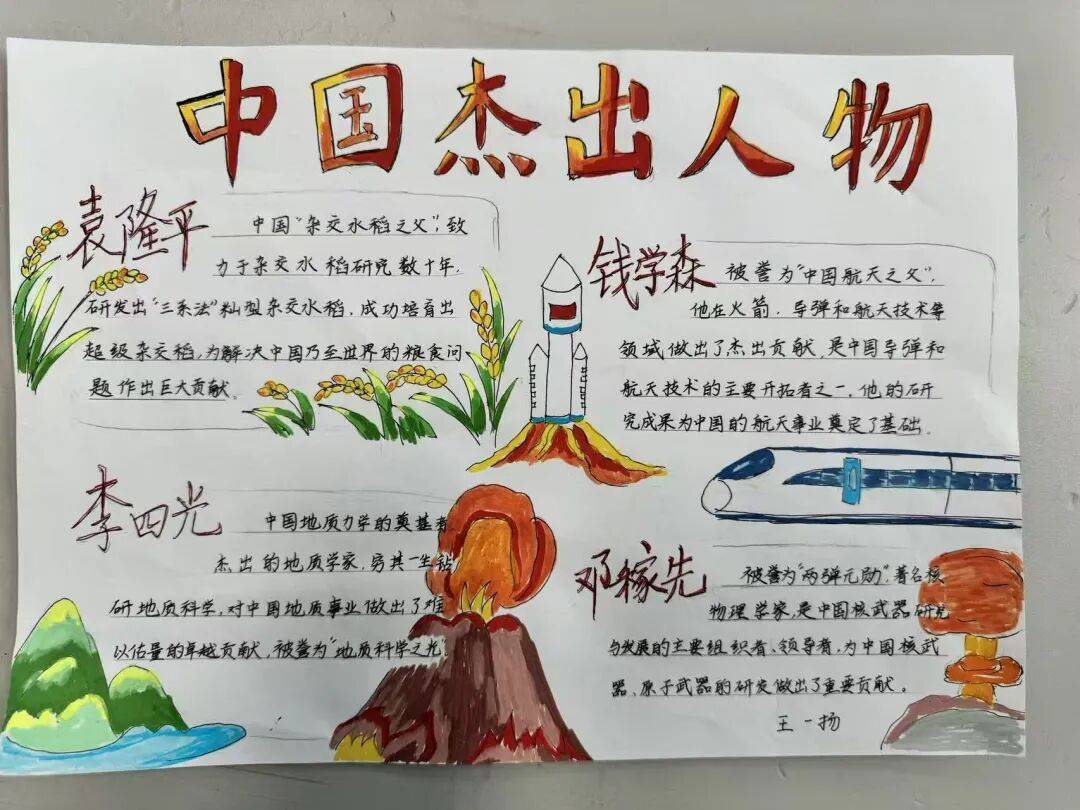 中国杰出人物
袁隆平
中国"杂交水稻之父"，致
力于杂交水稻研究数十年，
研发出"三系法"籼型杂交水稻，成功培育出
超级杂交稻，为解决中国乃至世界的粮食问
题作出巨大贡献。
钱学森
被誉为"中国航天之父"，
他在火箭、导弹和航天技术等
领域做出了杰出贡献，是中国导弹和
航天技术的主要开拓者之一，他的研
究成果为中国的航天事业奠定了基础。
李四光
中国地质力学的奠基者
杰出的地质学家，穷其一生钻
研地质科学，对中国地质事业做出了难
以估量的卓越贡献，被誉为"地质科学之光"
邓稼先
被誉为"两弹元勋"，著名核
物理学家，是中国核武器研究
与发展的主要组织者、领导者，为中国核武
器、原子武器的研发做出了重要贡献。
王一扬